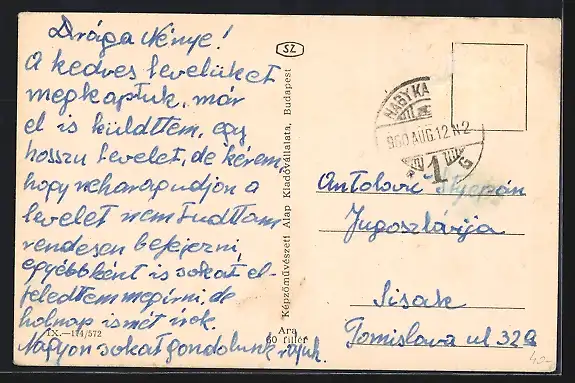 Drága Nénye!
A kedves levelüket
megkaptuk, már
el is küldtem, egy
hosszu levelet, de kérem,
hogy neharagudjon a
levelet nem tudtam
rendesen befejezni,
egyébbként is sokat el-
feledtem megirni, de
holnap ismét irok.
Nagyon sokat gondolunk rájuk.
IX.—174/572
Ára
60 fillér
Képzőművészeti Alap Kiadóvállalata, Budapest
SZ
NAGYKA
960 AUG. 12 N 2
1
Antolović Stjepan
Jugoszlávija
Sisak
Tomislava ul 32a
40-